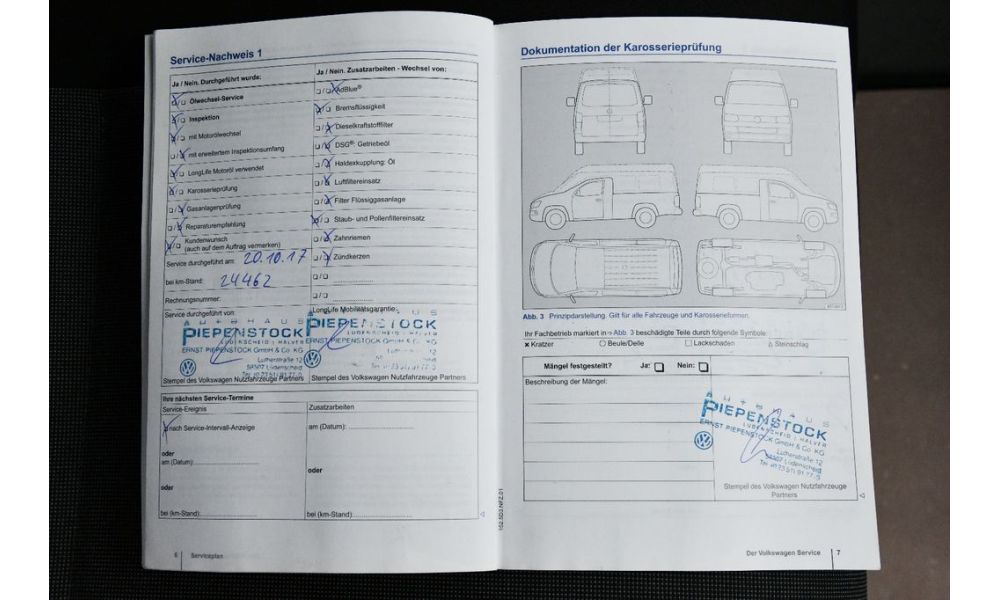 Service-Nachweis 1
Ja / Nein. Durchgeführt wurde:
Ölwechsel-Service
Inspektion
mit Motorölwechsel
mit erweitertem Inspektionsumfang
LongLife Motoröl verwendet
Karosserieprüfung
Gasanlagenprüfung
Reparaturempfehlung
Kundenwunsch
(auch auf dem Auftrag vermerken)
Service durchgeführt am: 20.10.17
bei km-Stand: 24462
Rechnungsnummer:
Service durchgeführt von:
AUTOHAUS
PIEPENSTOCK
LÜDENSCHEID | HALVER
ERNST PIEPENSTOCK GmbH & Co. KG
Lutherstraße 12
58507 Lüdenscheid
Stempel des Volkswagen Nutzfahrzeuge Partners
Ja / Nein. Zusatzarbeiten - Wechsel von:
AdBlue®
Bremsflüssigkeit
Dieselkraftstofffilter
DSG®: Getriebeöl
Haldexkupplung: Öl
Luftfiltereinsatz
Filter Flüssiggasanlage
Staub- und Pollenfiltereinsatz
Zahnriemen
Zündkerzen
LongLife Mobilitätsgarantie:
AUTOHAUS
PIEPENSTOCK
LÜDENSCHEID | HALVER
ERNST PIEPENSTOCK GmbH & Co. KG
Stempel des Volkswagen Nutzfahrzeuge Partners
Ihre nächsten Service-Termine
Service-Ereignis
nach Service-Intervall-Anzeige
oder
am (Datum):
oder
bei (km-Stand):
Zusatzarbeiten
am (Datum):
oder
bei (km-Stand):
6 Serviceplan
152.5D3.NFZ.01
Dokumentation der Karosserieprüfung
Abb. 3 Prinzipdarstellung. Gilt für alle Fahrzeuge und Karosserieformen.
Ihr Fachbetrieb markiert in ⇒ Abb. 3 beschädigte Teile durch folgende Symbole:
Kratzer Beule/Delle Lackschaden Steinschlag
Mängel festgestellt? Ja: Nein:
Beschreibung der Mängel:
AUTOHAUS
PIEPENSTOCK
LÜDENSCHEID | HALVER
ERNST PIEPENSTOCK GmbH & Co. KG
Lutherstraße 12
58507 Lüdenscheid
Stempel des Volkswagen Nutzfahrzeuge
Partners
Der Volkswagen Service 7